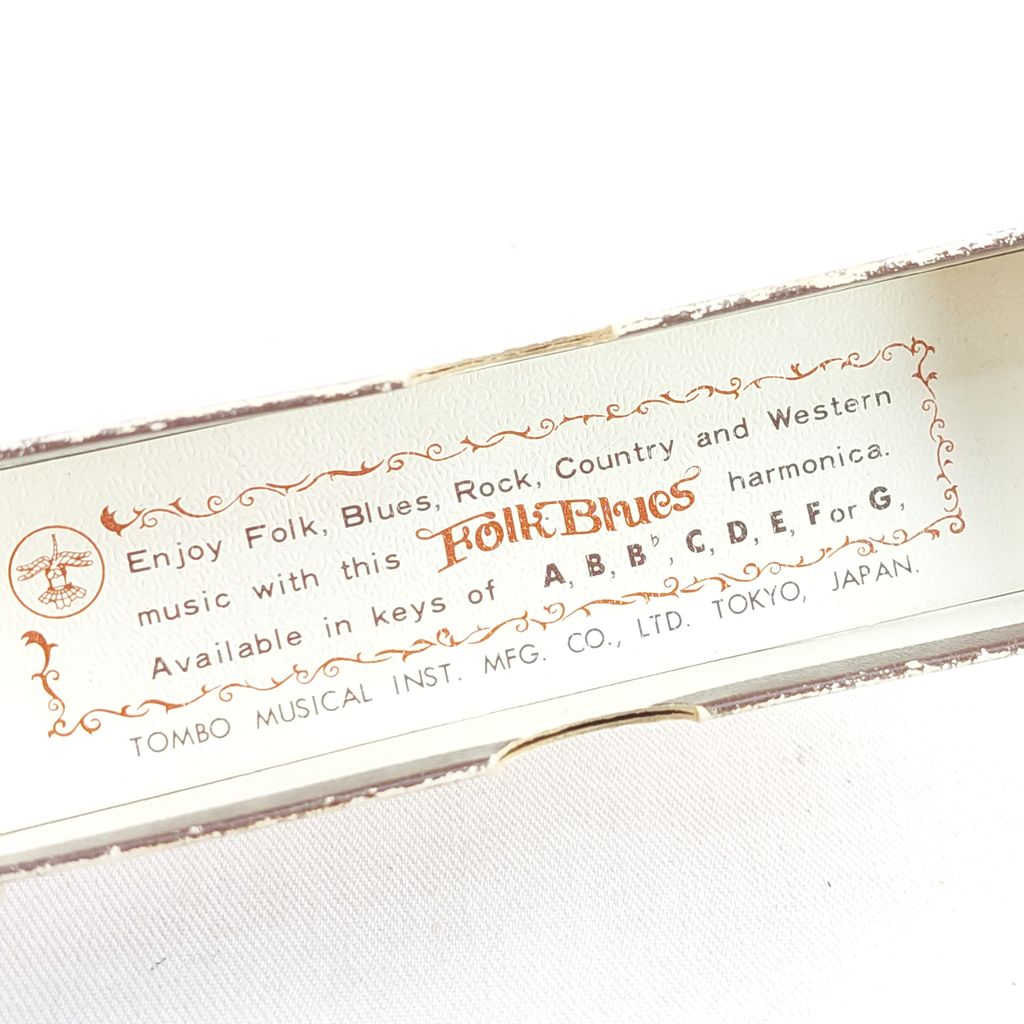 Enjoy Folk, Blues, Rock, Country and Western
music with this Folk Blues harmonica.
Available in keys of A, B, B♭, C, D, E, F or G,
TOMBO MUSICAL INST. MFG. CO., LTD. TOKYO, JAPAN.